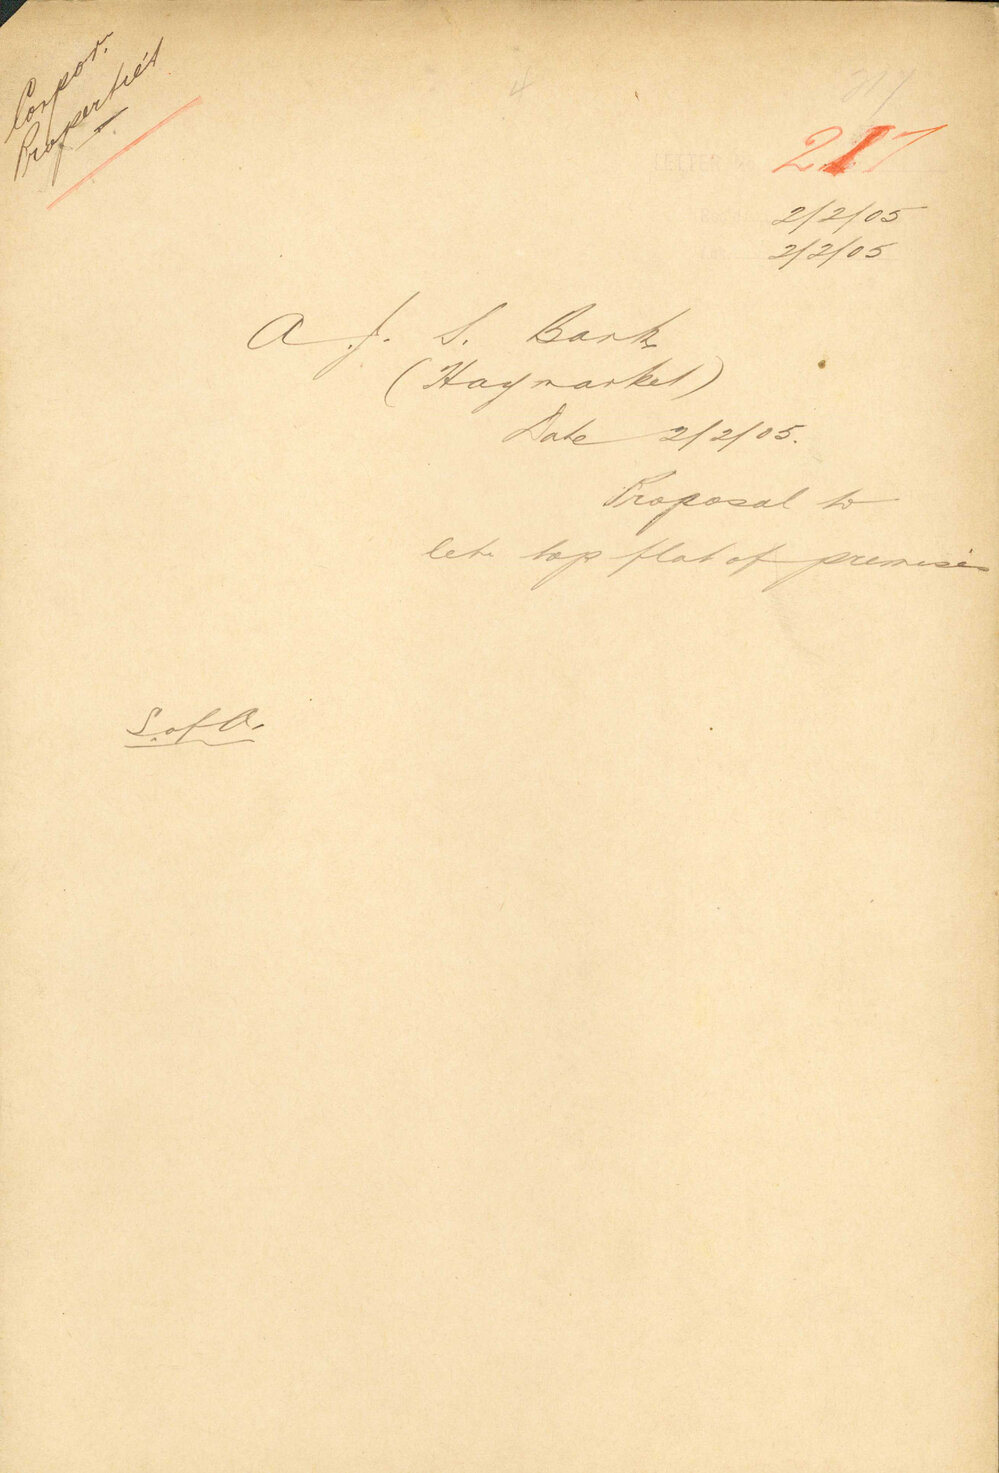 Corpor.
Properties
217
2/2/05
2/2/05
A. J. S. Bank
(Haymarket)
Date 2/2/05.
Proposal to
let top flat of premises
S. of A.